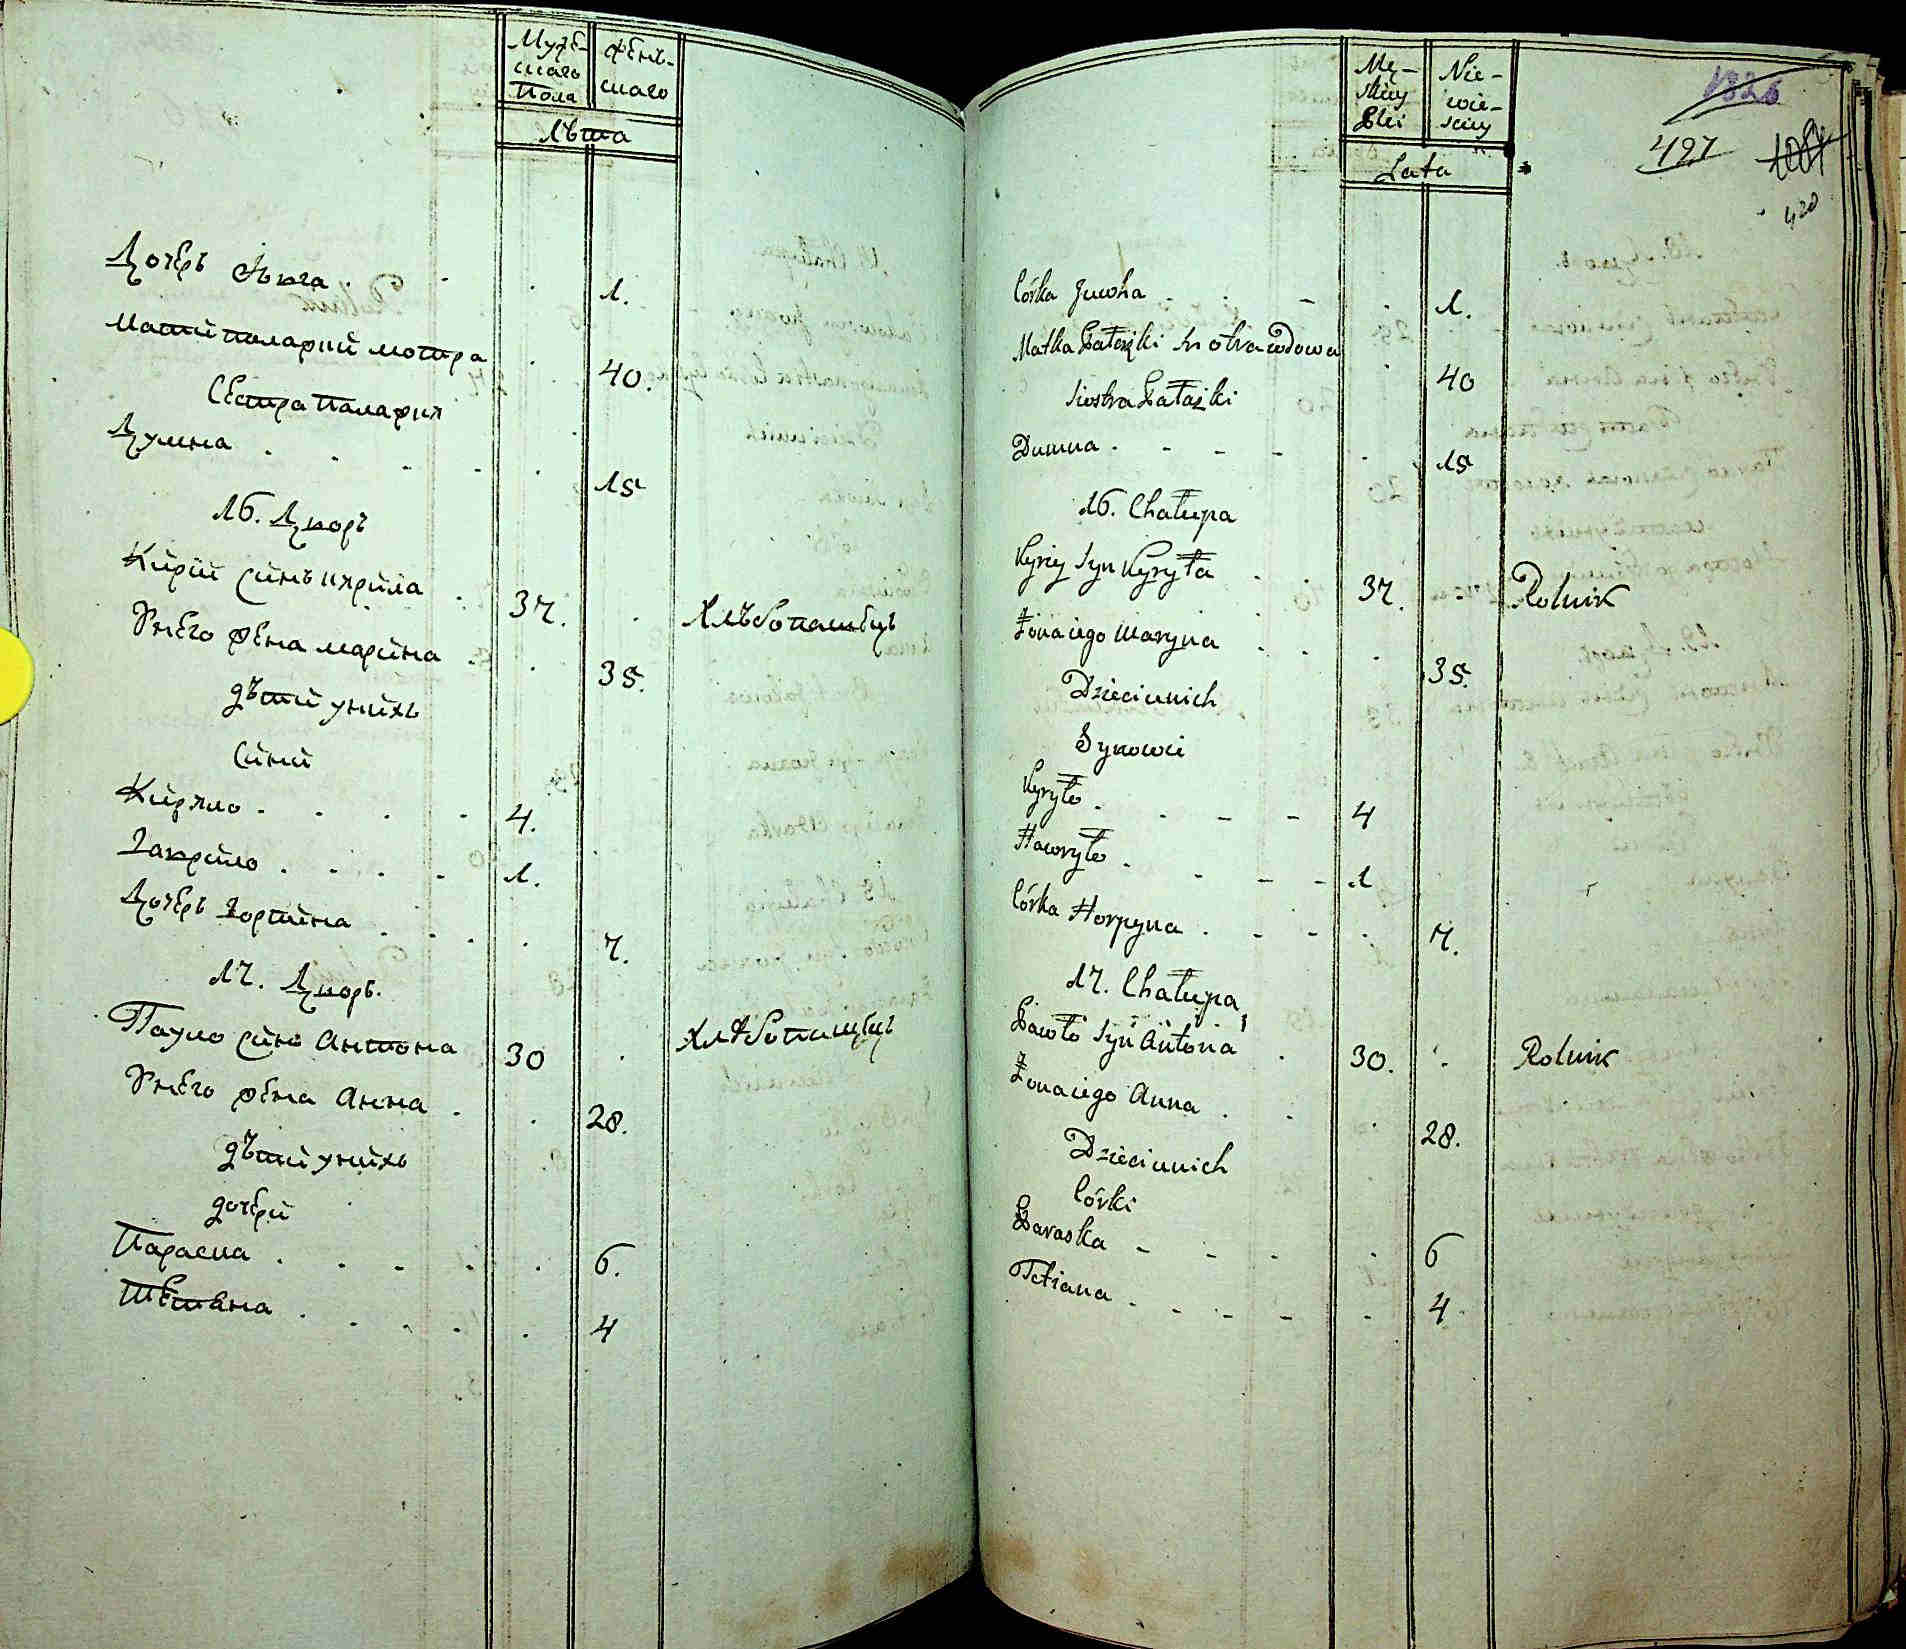 Муже-
скаго
Пола
Женъ-
скаго
Лѣта
Дочерь Явга . . . 1.
Матй паларий мотра . 40.
Сестра Палария
Думна . . . . . 15
16. Дворъ
Кирій синъ кирйла . 37. . Хлѣбопашець
Унего жена марйна . . 35.
дѣтй унйхъ
Синй
Кирило . . . . 4.
Гаврйло . . . . 1.
Дочерь Горпйна . . . . 7.
17. Дворъ.
Павло синъ Антона 30 . Хлѣбопашець
Унего жена Анна . . 28.
дѣтй унйхъ
дочерй
Параска . . . . . 6.
Тетяна . . . . . 4
Mę-
skiey
Płci
Nie-
wie-
sciey
Lata
1826
497
1084
420
Córka Juwha - . 1.
Matka Pałażki Motra wdowa . 40
Siostra Pałażki
Dumna . - - - . 15
16. Chałupa
Kyriy Syn Kyryła . . 37. Rolnik
Żona iego Maryna . . . 35.
Dzieci unich
Synowie
Kyryło . . - - 4
Hawryło . - - - 1
Córka Horpyna . - - . 7.
17. Chałupa
Pawło Syn Antona . 30. . Rolnik
Żona iego Anna . . . 28.
Dzieci unich
Córki
Paraska - - - . 6
Tetiana . - - - . 4